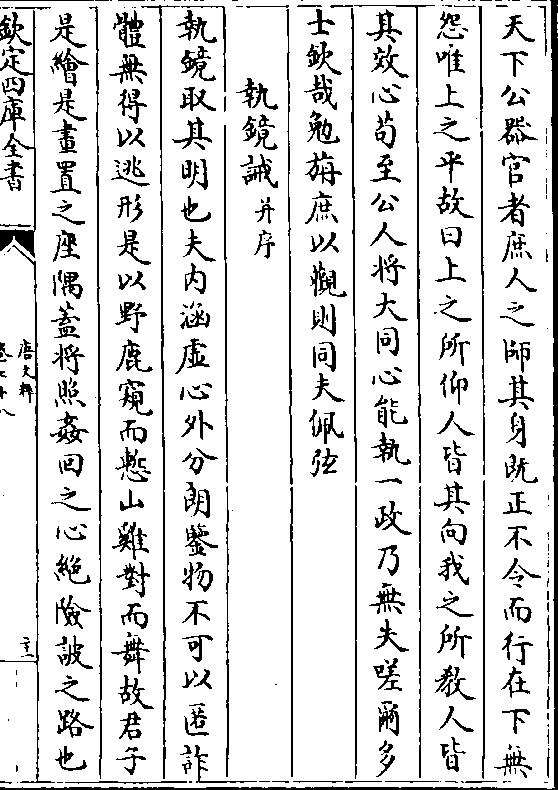 天下公器官者庶人之師其身既正不令而行在下無
怨唯上之平故曰上之所仰人皆其向我之所教人皆
其效心苟至公人將大同心能執一政乃無失嗟爾多
士欽哉勉旃庶以觀則同夫佩弦
執鏡誡并序
執鏡取其明也夫内涵虛心外分朗鑒物不可以匿詐
體無得以逃形是以野鹿窺而慙山雞對而舞故君子
是繪是畫置之座隅蓋將照姦回之心絶險詖之路也
欽定四庫全書
唐文粹